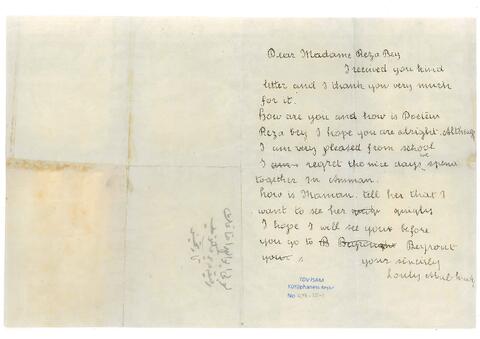 Dear Madame Reza Bey
I received you kind
letter and I thank you very much
for it.
How are you and how is Docteur
Reza bey I hope you are alright. Although
I am very pleased from school
I regret the nice days we spend
together in Amman.
How is Maman. tell her that I
want to see her
I hope I will see your before
you go to Beyrout
your sincirly
TDV İSAM
Kütüphanesi Arşivi
No